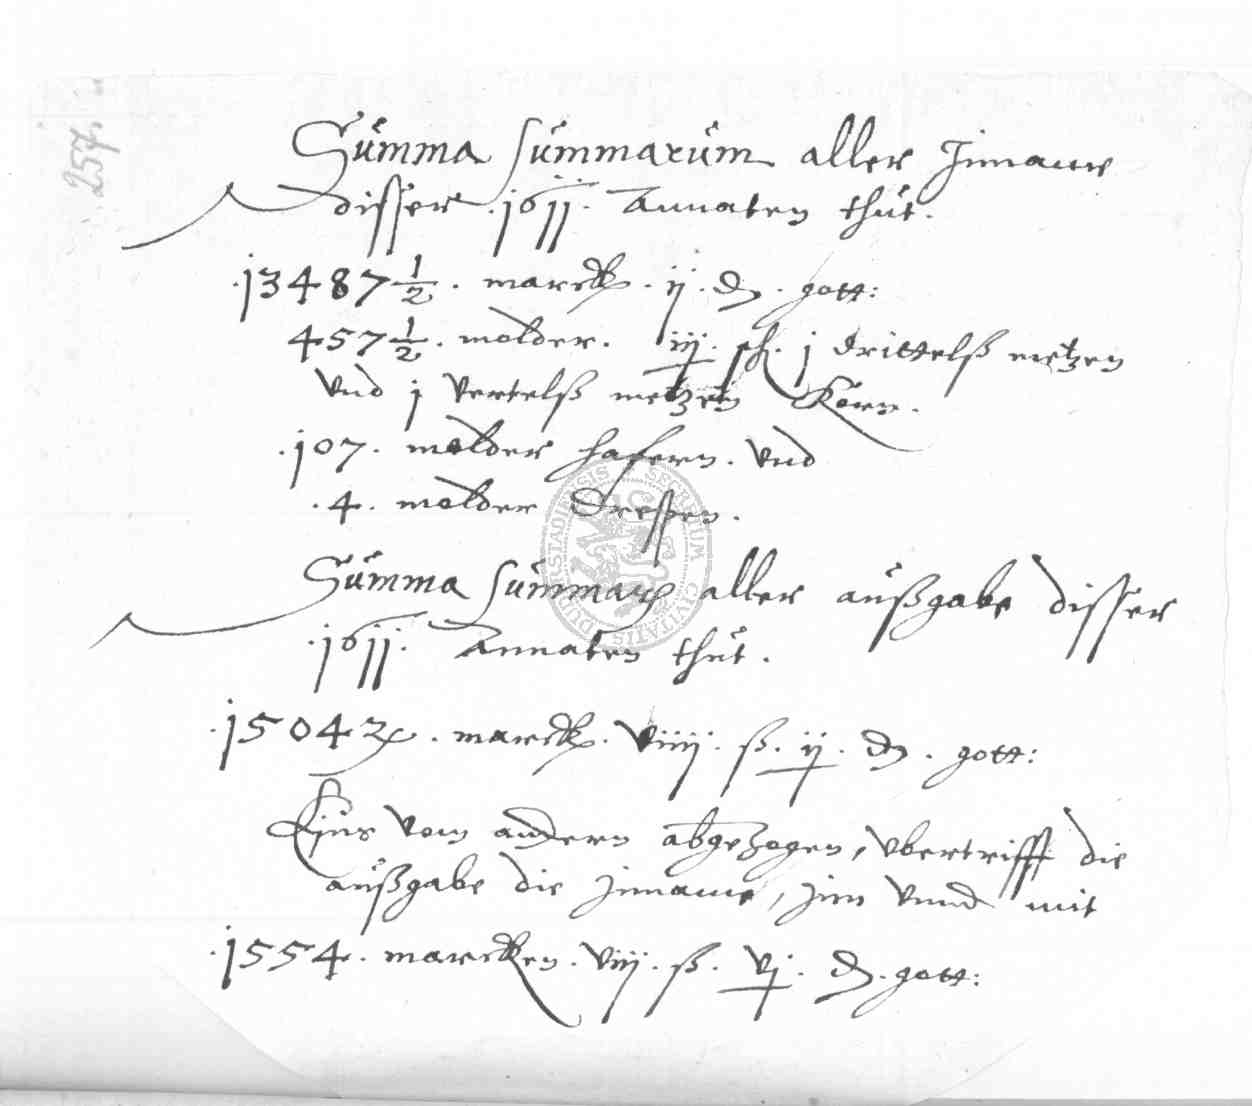 257.
Summa summarum aller Inname
disser .1611. Annaten thut.
.13487 1/2. marck. ij. d. gott:
457 1/2. molder. iij. sch. j drittelß metzen
vnd j vertelß metzen Korn.
.107. molder hafern. vnd
.4. molder Drespen.
Summa summar aller außgabe disser
.1611. Annaten thut.
.15042. marck. viiij. ß. ij. d. gott:
Eins vom andern abgezogen, vbertrifft die
außgabe die Inname, Inn vnnd mit
.1554. marcken. viij. ß. vj. d. gott:
SECRETUM CIVITATIS DUDERSTADIENSIS